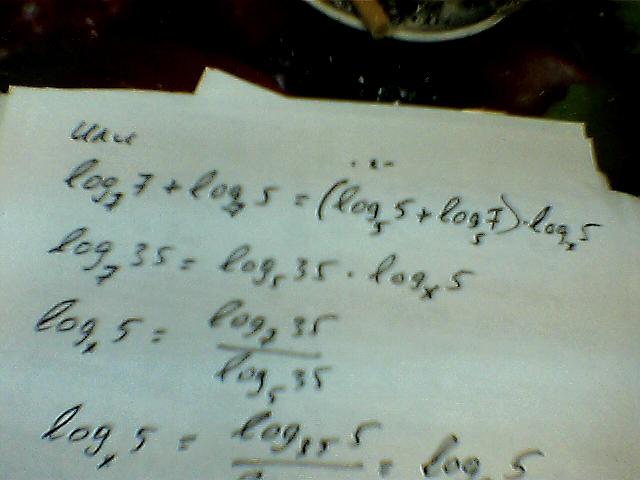 или
log₇ 7 + log₇ 5 = (log₅ 5 + log₅ 7) · logₓ 5
log₇ 35 = log₅ 35 · logₓ 5
logₓ 5 = log₇ 35
log₅ 35
logₓ 5 = log₃₅ 5 = log 5